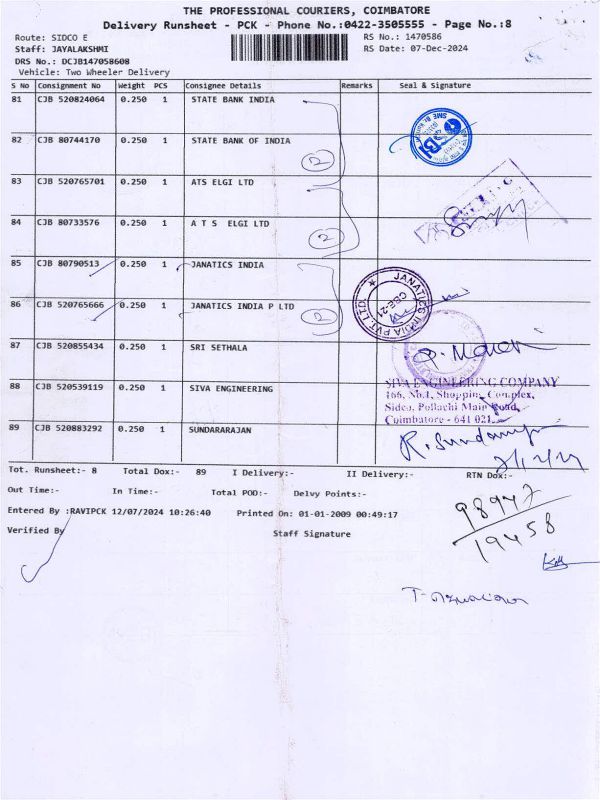 THE PROFESSIONAL COURIERS, COIMBATORE
Delivery Runsheet - PCK - Phone No.:0422-3505555 - Page No.:8
Route: SIDCO E RS No.: 1470586
Staff: JAYALAKSHMI RS Date: 07-Dec-2024
DRS No.: DCJB147058608
Vehicle: Two Wheeler Delivery
S No Consignment No Weight PCS Consignee Details Remarks Seal & Signature
81 CJB 520824064 0.250 1 STATE BANK INDIA
82 CJB 80744170 0.250 1 STATE BANK OF INDIA
2
83 CJB 520765701 0.250 1 ATS ELGI LTD
84 CJB 80733576 0.250 1 A T S ELGI LTD
2
85 CJB 80790513 0.250 1 JANATICS INDIA
86 CJB 520765666 0.250 1 JANATICS INDIA P LTD
2
JANATICS INDIA PVT. LTD.
CBE-21
87 CJB 520855434 0.250 1 SRI SETHALA
88 CJB 520539119 0.250 1 SIVA ENGINEERING
SIVA ENGINEERING COMPANY
166, No.1, Shopping Complex,
Sidco, Pollachi Main Road,
Coimbatore - 641 021.
89 CJB 520883292 0.250 1 SUNDARARAJAN
Tot. Runsheet:- 8 Total Dox:- 89 I Delivery:- II Delivery:- RTN Dox:-
Out Time:- In Time:- Total POD:- Delvy Points:-
Entered By :RAVIPCK 12/07/2024 10:26:40 Printed On: 01-01-2009 00:49:17
Verified By Staff Signature
98947
19458